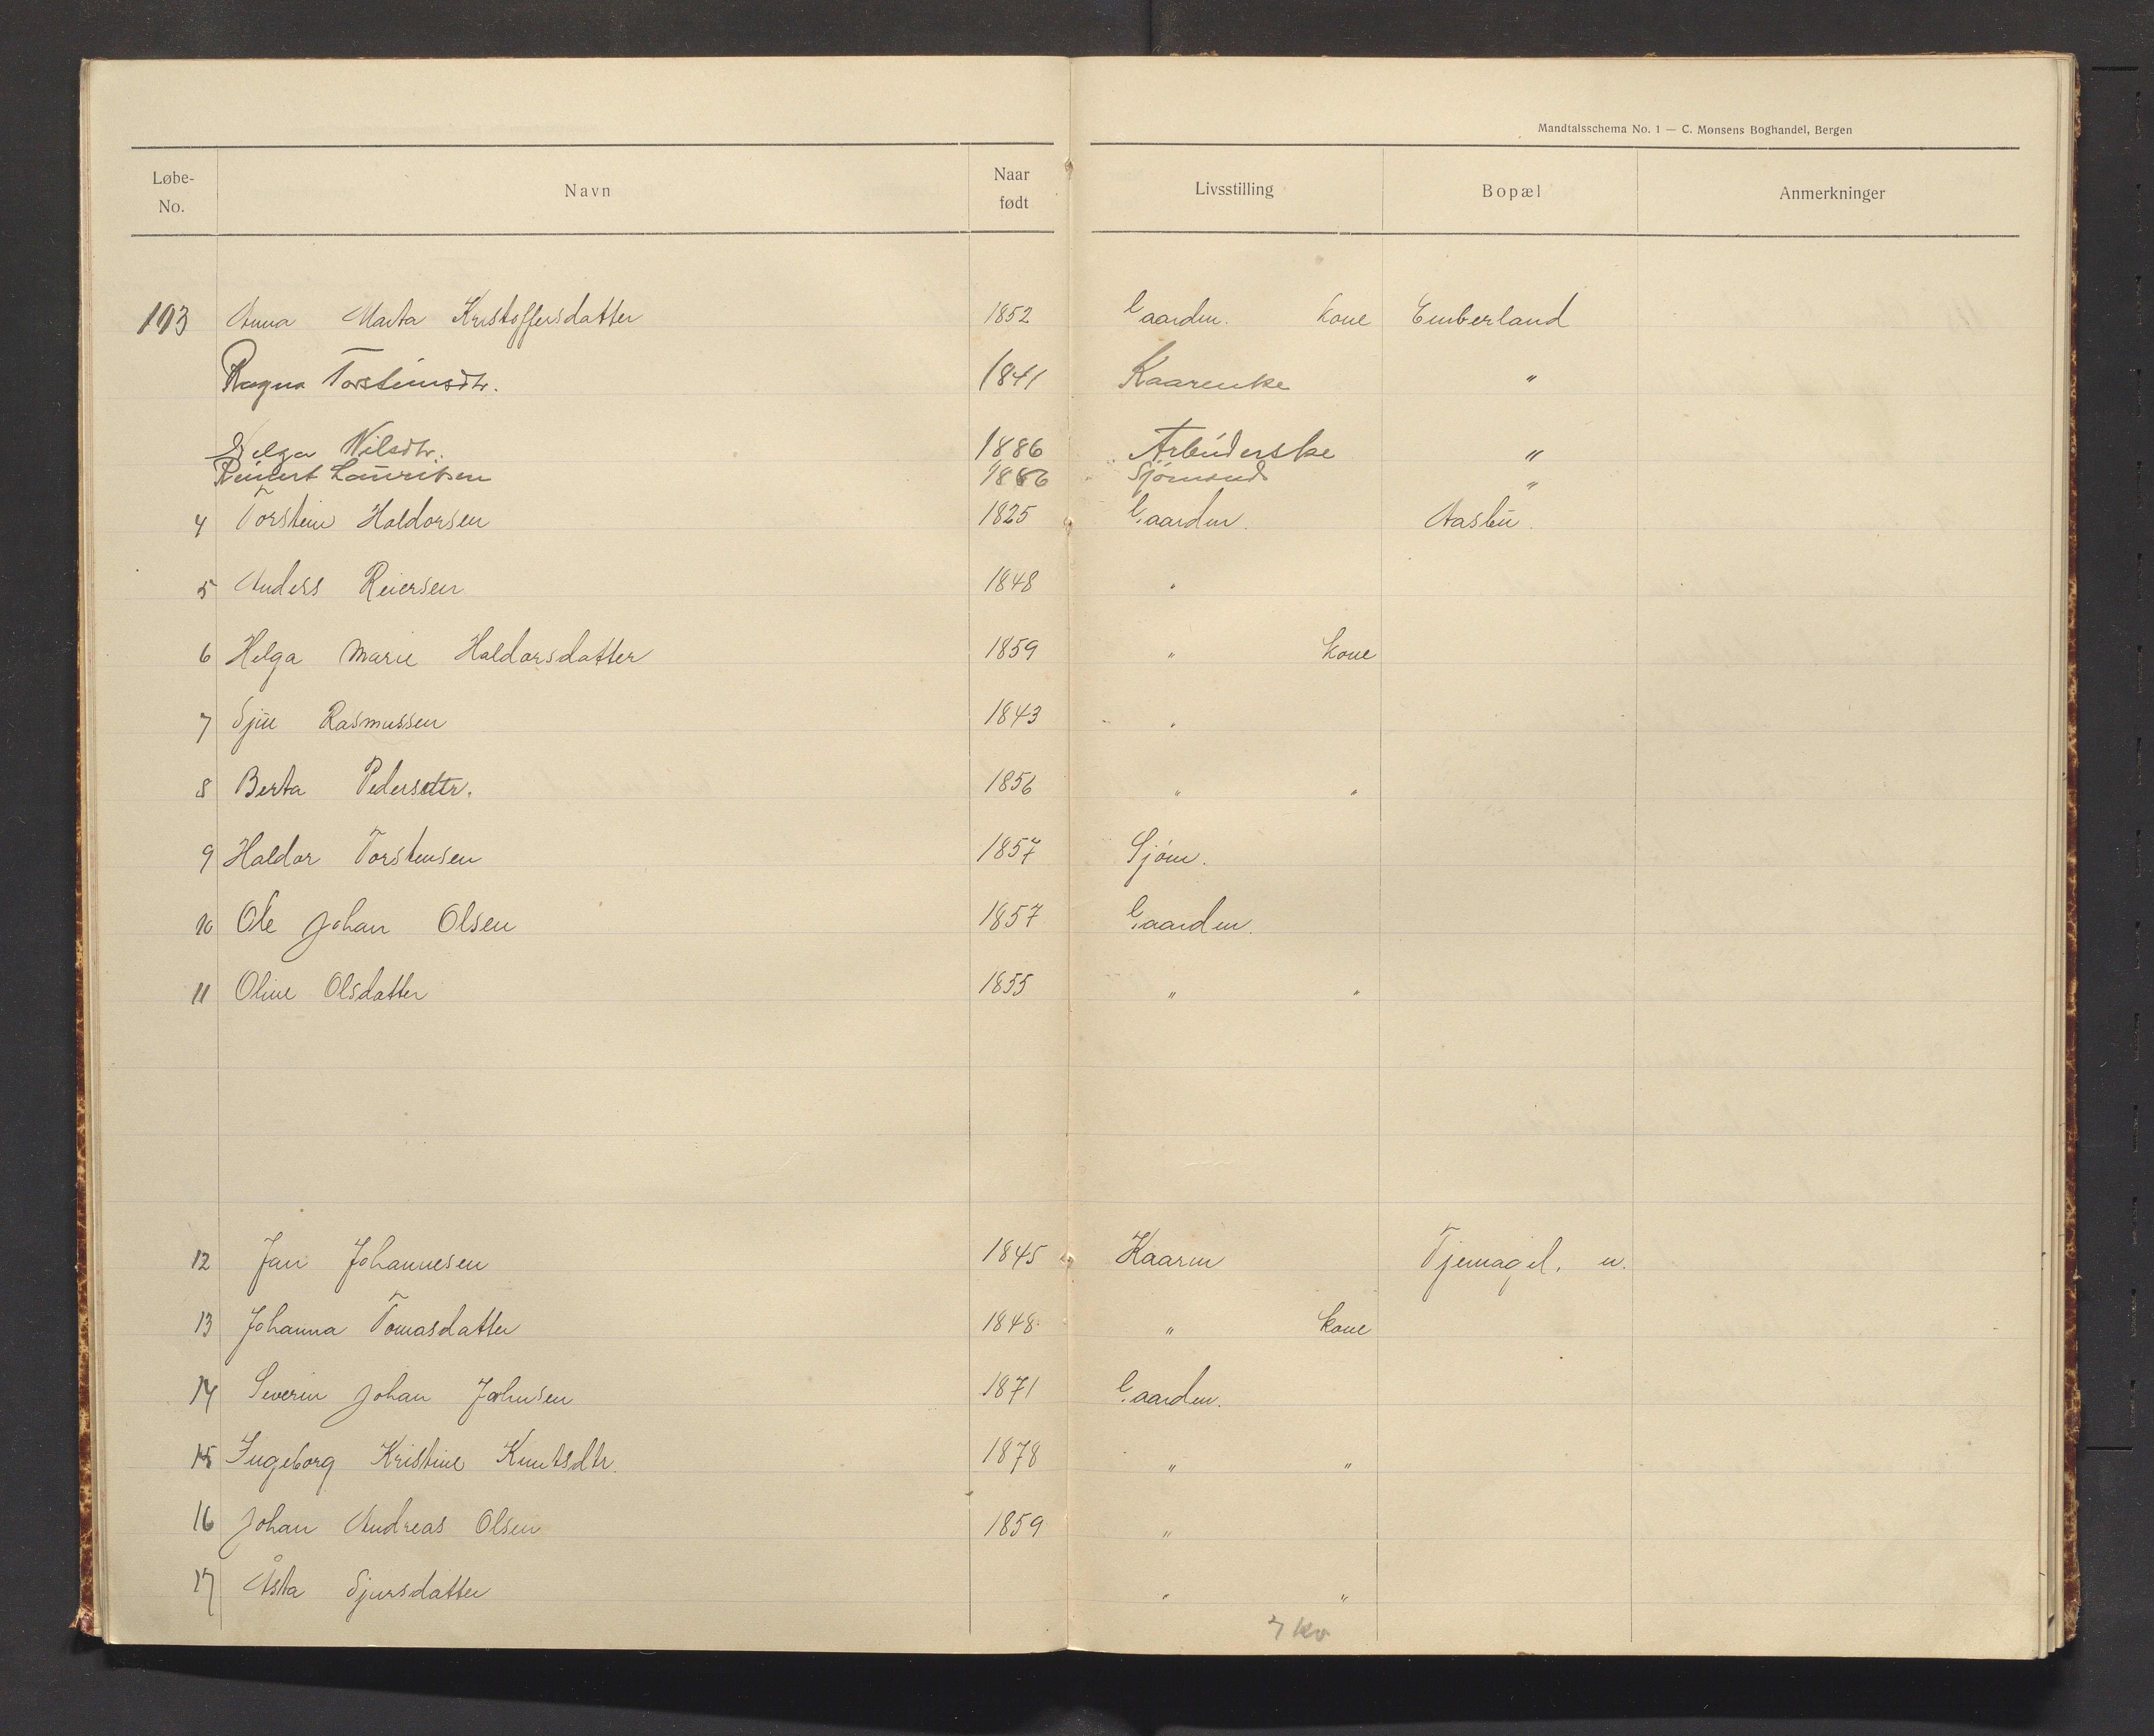 Mandtalsschema No. 1 — C. Monsens Boghandel, Bergen
Løbe-No. Navn Naar født Livsstilling Bopæl Anmerkninger
103 Anna Marta Kristoffersdatter 1852 Gaardm. kone Emberland
Ragna Torsteinsdtr. 1841 Kaarenke "
Helga Nilsdtr. 1886 Arbeiderske "
Reinert Lauritsen 1886 Sjømand "
4 Torstein Haldorsen 1825 Gaardm. Aasbu
5 Anders Reiersen 1848 "
6 Helga Marie Haldorsdatter 1859 " kone
7 Sjur Rasmussen 1843 "
8 Berta Pedersdtr. 1856 " "
9 Haldor Torstensen 1857 Sjøm.
10 Ole Johan Olsen 1857 Gaardm.
11 Oline Olsdatter 1855 " "
12 Jan Johannesen 1845 Kaarm Tjernagel. n.
13 Johanna Tomasdatter 1848 " kone
14 Severin Johan Johnsen 1871 Gaardm.
15 Ingeborg Kristine Knutsdtr. 1878 " "
16 Johan Andreas Olsen 1859 "
17 Åsta Sjursdatter " "
7 kv